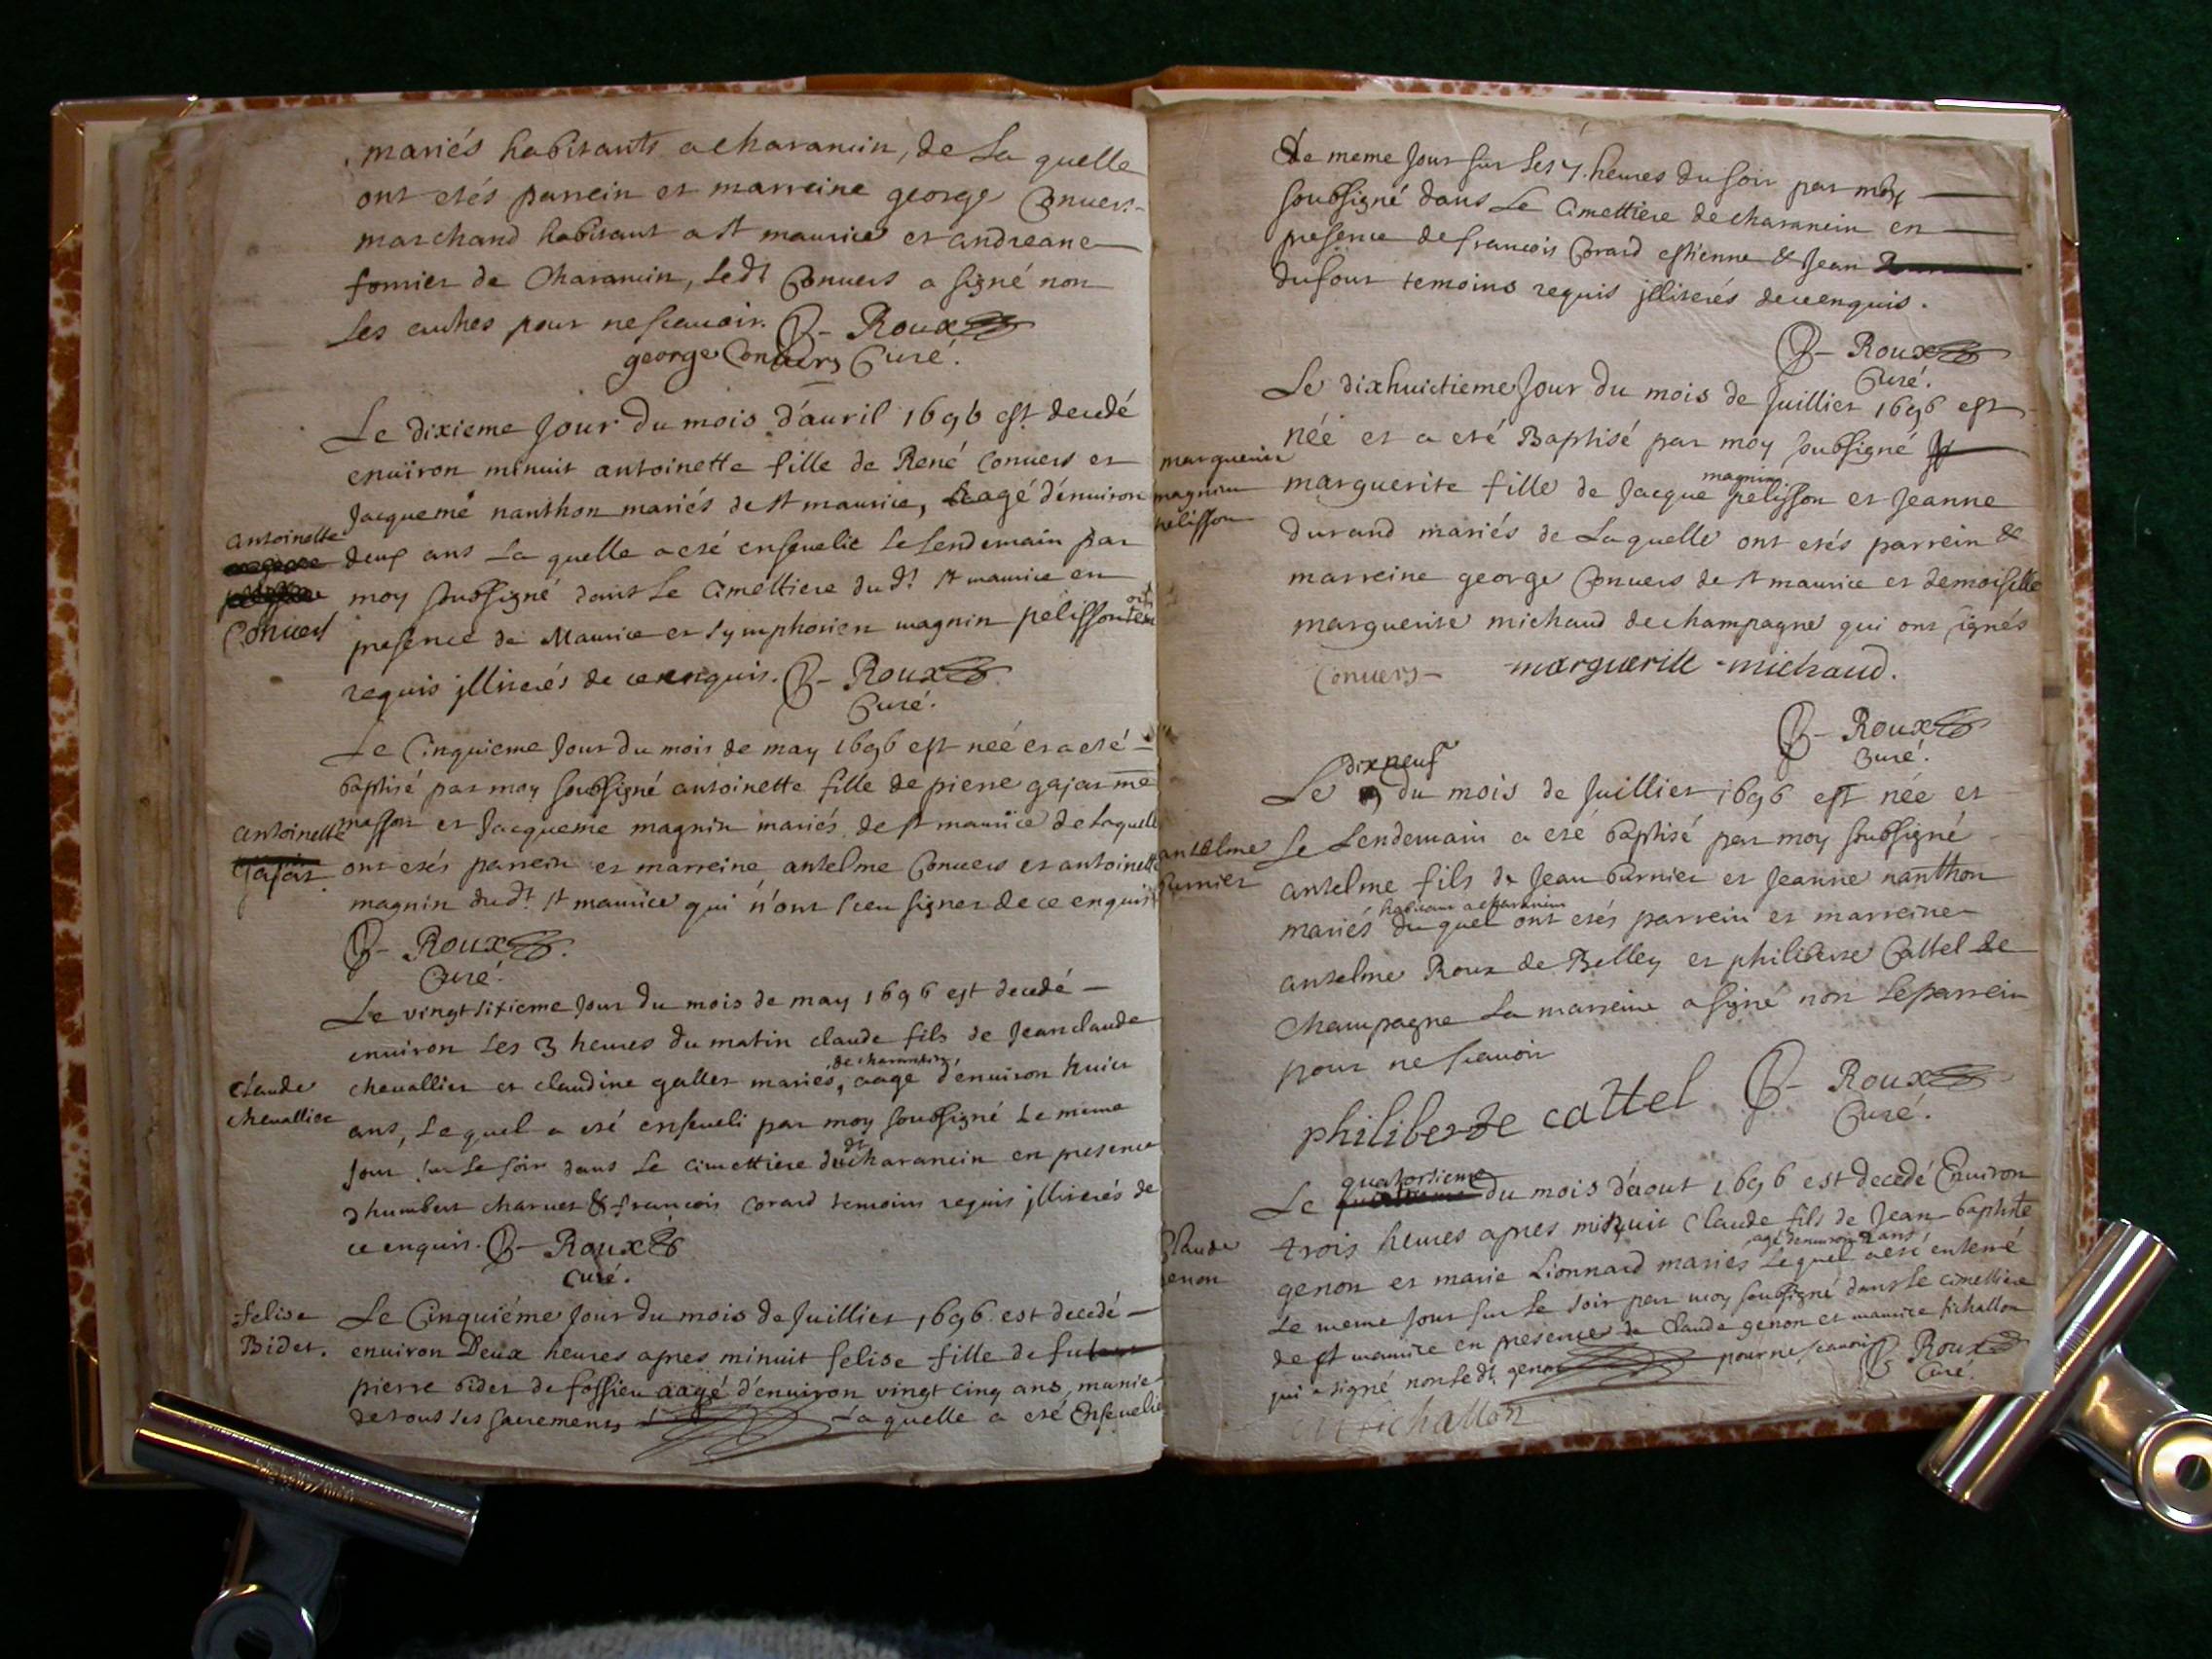 mariés habitants a charancin, de La quelle
ont etés parrein et marreine george Convers
marchand habitant a st maurice et andreane
fornier de Charancin, Ledt Convers a signé non
Les autres pour ne scavoir. B- Roux
george Convers Curé.
Le dixieme Jour du mois d'auril 1696 est decedé
enuiron minuit antoinette fille de René Conuers et
Jacqueme nanthon mariés de st maurice, aagé d'enuiron
Antoinette
deux ans La quelle a eté enseuelie Le Lendemain par
moy soubsigné dans Le Cimettiere du dt st maurice en
Conuers
presence de Maurice et symphorien magnin pelisson tem
oins
requis jlliterés de ce enquis. B- Roux
Curé.
Le Cinquieme Jour du mois de may 1696 est néé et a eté
baptisé par moy soubsigné antoinette fille de pierre gajat me
Antoinette
masson et Jacqueme magnin mariés de st maurice de Laquelle
gajat
ont etés parrein et marreine antelme Conuers et antoinette
magnin du dt st maurice qui n'ont sceu signer de ce enquis
B- Roux.
Curé.
Le vingt sixieme Jour du mois de may 1696 est decedé
enuiron Les 3 heures du matin claude fils de Jean claude
de charancin,
Claude
chevallier
chevallier et claudine gallet mariés, aagé d'enuiron huict
ans, Lequel a eté enseueli par moy soubsigné Le meme
Jour sur Le soir dans Le cimettiere dudt charancin en presence
d humbert charuet & francois corard temoins requis jlliterés de
ce enquis. B- Roux
Curé.
felise
Bidet.
Le Cinquiéme Jour du mois de Juillier 1696 est decedé
enuiron Deux heures apres minuit felise fille de fu
pierre bidet de fossieu aagé d'enuiron vingt cinq ans, munie
de tous ses sacrements La quelle a eté Enseuelie
Le meme Jour sur Les 7. heures du soir par moy
soubsigné dans Le Cimettiere de charancin en
presence de francois Corard estienne & Jean
dufour temoins requis jlliterés de ce enquis.
B- Roux
Curé.
Le dixhuictieme Jour du mois de Juillier 1696 est
néé et a eté Baptisé par moy soubsigné
marguerite
magnin
pelisson
magnin
marguerite fille de Jacque pelisson et Jeanne
durand mariés de Laquelle ont etés parrein &
marreine george Conuers de st maurice et demoiselle
marguerite michaud de champagne qui ont signés
Convers marguerite michaud.
B- Roux
Curé.
dix neuf
Le du mois de Juillier 1696 est née et
Le Lendemain a eté baptisé par moy soubsigné
antelme
burnier
antelme fils de Jean burnier et Jeanne nanthon
habitant a charancin
mariés du quel ont etés parrein et marreine
antelme Roux de Belley et philiberte Cattel de
Champagne La marreine a signé non Le parrein
pour ne scauoir
philiberte cattel B- Roux
Curé.
quatorsieme
Le du mois d'aout 1696 est decedé Enuiron
Claude
genon
trois heures apres minuit Claude fils de Jean-baptiste
agé d'enuiron 2 ans
genon et marie Lionnard mariés Lequel a eté enterré
Le meme Jour sur Le soir par moy soubsigné dans Le cimettiere
de st maurice en presence de Claude genon et maurice fichallon
qui a signé non Le dt genon pour ne scauoir B Roux
Curé.